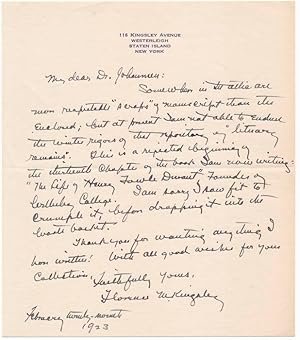 116 KINGSLEY AVENUE
WESTERLEIGH
STATEN ISLAND
NEW YORK
My dear Dr. Johnson:
Somewhere in the attic are
more respectable "scraps" of manuscript than the
enclosed; but at present I am not able to endure
the winter rigors of that repository of "literary
remains". This is a repeated beginning of
the thirteenth Chapter of the book I am now writing:
"The Life of Henry Fowle Durant" Founder of
Wellesley College. I am sorry I saw fit to
crumple it, before dropping it into the
waste basket.
Thank you for wanting anything I
have written! With all good wishes for your
Collection,
Faithfully yours,
Florence M. Kingsley
February twenty-
1923